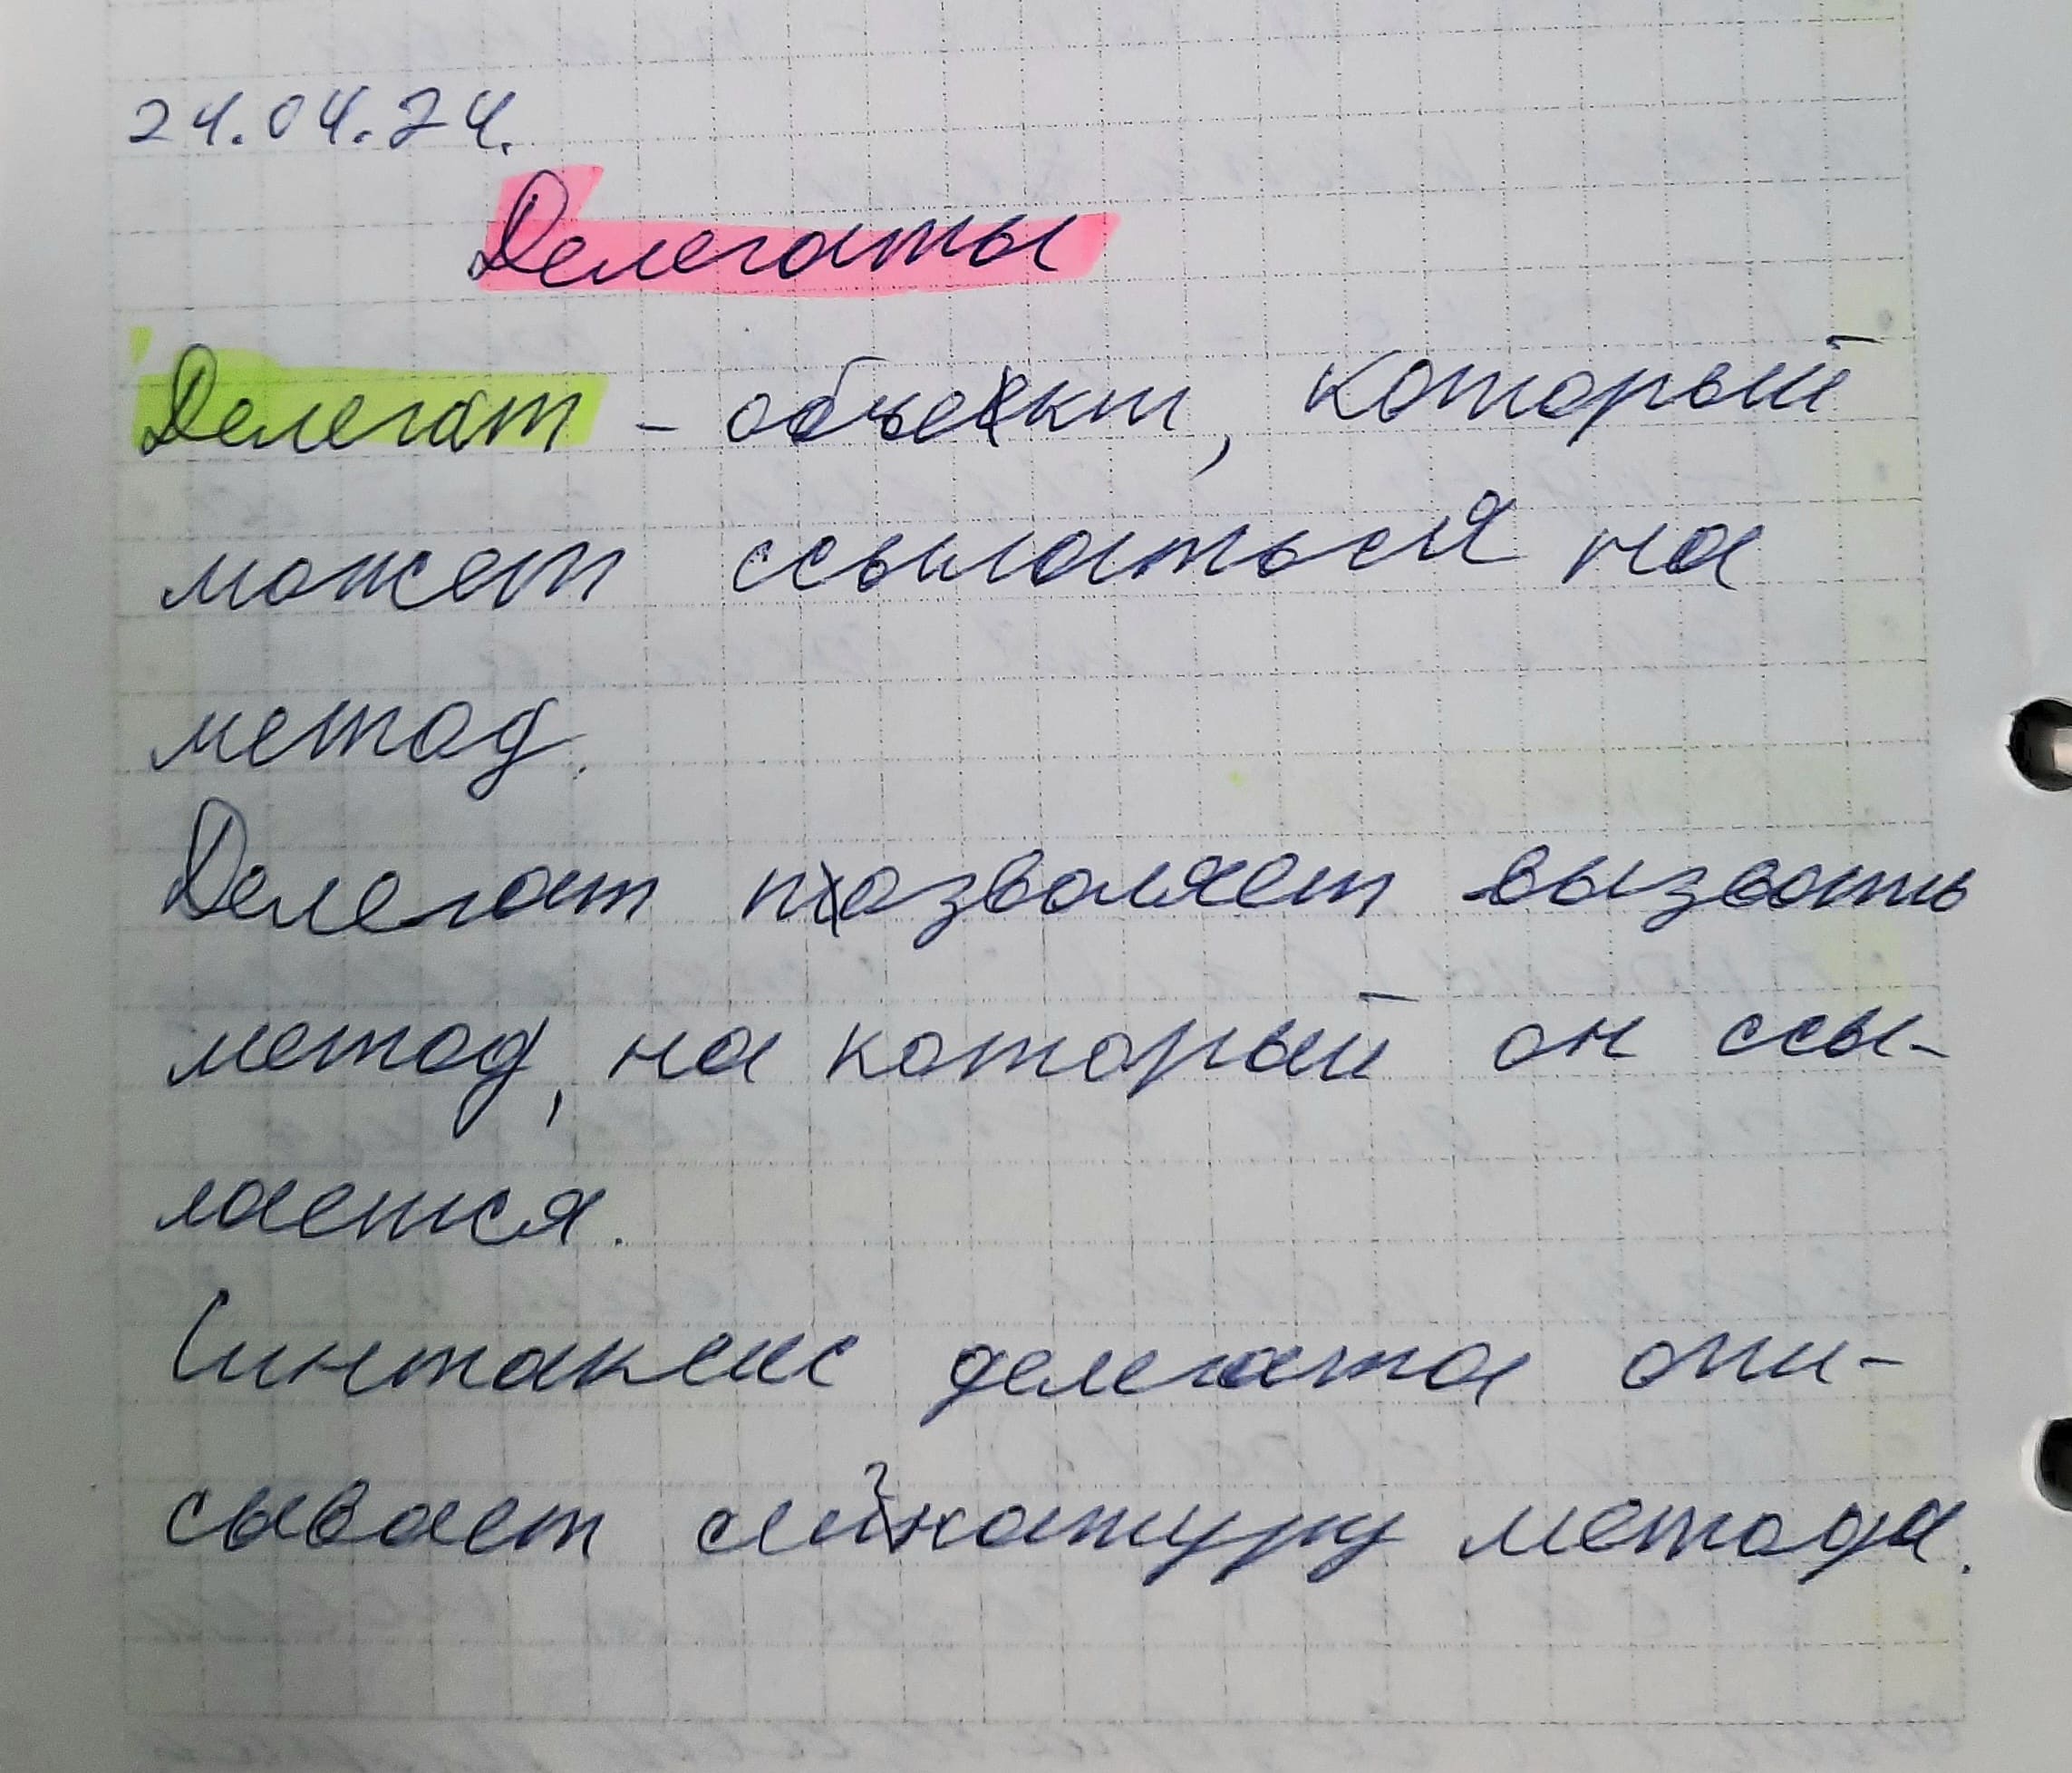 24.04.24.
Делегаты
Делегат - объект, который
может ссылаться на
метод.
Делегат позволяет вызвать
метод, на который он ссы-
лается.
Синтаксис делегата опи-
сывает сигнатуру метода.